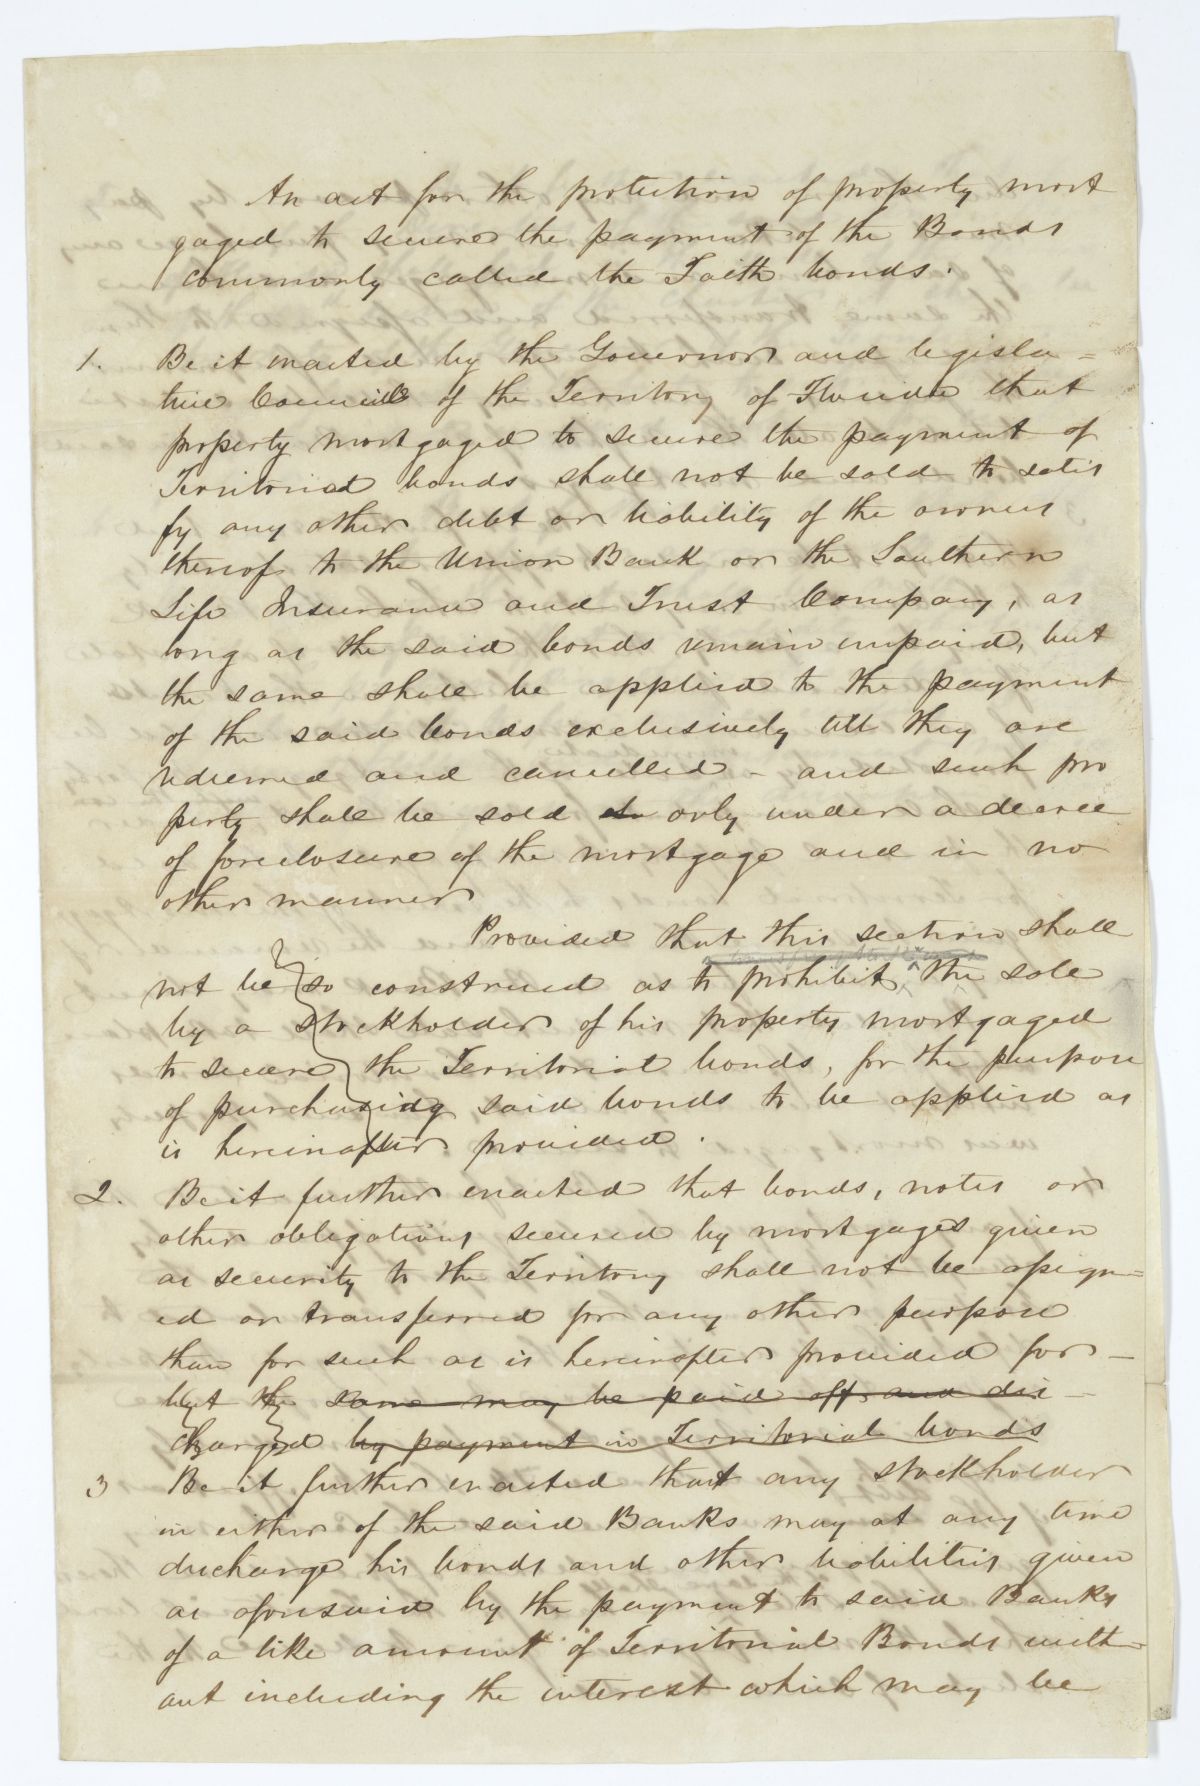 An act for the protection of property mort
gaged to secure the payment of the Bonds
commonly called the Faith bonds.
1. Be it enacted by the Governor and legisla=
tive Council of the Territory of Florida that
property mortgaged to secure the payment of
Territorial bonds shall not be sold to satis
fy any other debt or liability of the owners
thereof to the Union Bank or the Southern
Life Insurance and Trust Company, as
long as the said bonds remain unpaid, but
the same shall be applied to the payment
of the said bonds exclusively till they are
redeemed and cancelled - and such pro
perty shall be sold only under a decree
of foreclosure of the mortgage and in no
other manner
Provided that this section shall
not be so construed as to prohibit the sale
by a stockholder of his property mortgaged
to secure the Territorial bonds, for the purpose
of purchasing said bonds to be applied as
is hereinafter provided.
2. Be it further enacted that bonds, notes or
other obligations secured by mortgages given
as security to the Territory shall not be assign=
ed or transferred for any other purpose
than for such as is hereinafter provided for -
but the same may be paid off and dis -
charged by payment in Territorial bonds
3 Be it further enacted that any stockholder
in either of the said Banks may at any time
discharge his bonds and other liabilities given
as aforesaid by the payment to said Banks
of a like amount of Territorial Bonds with=
out including the interest which may be